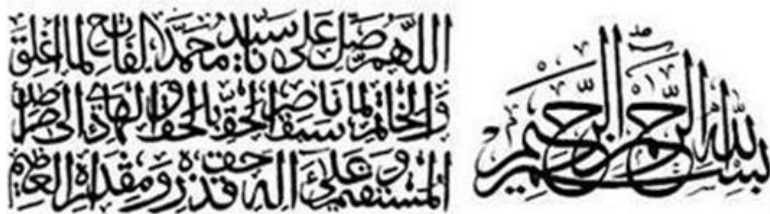 بسم الله الرحمن الرحيم
اللهم صل على سيدنا محمد الفاتح لما اغلق
والخاتم لما سبق ناصر الحق بالحق والهادي الى صراط
المستقيم وعلى اله حق قدره ومقداره العظيم